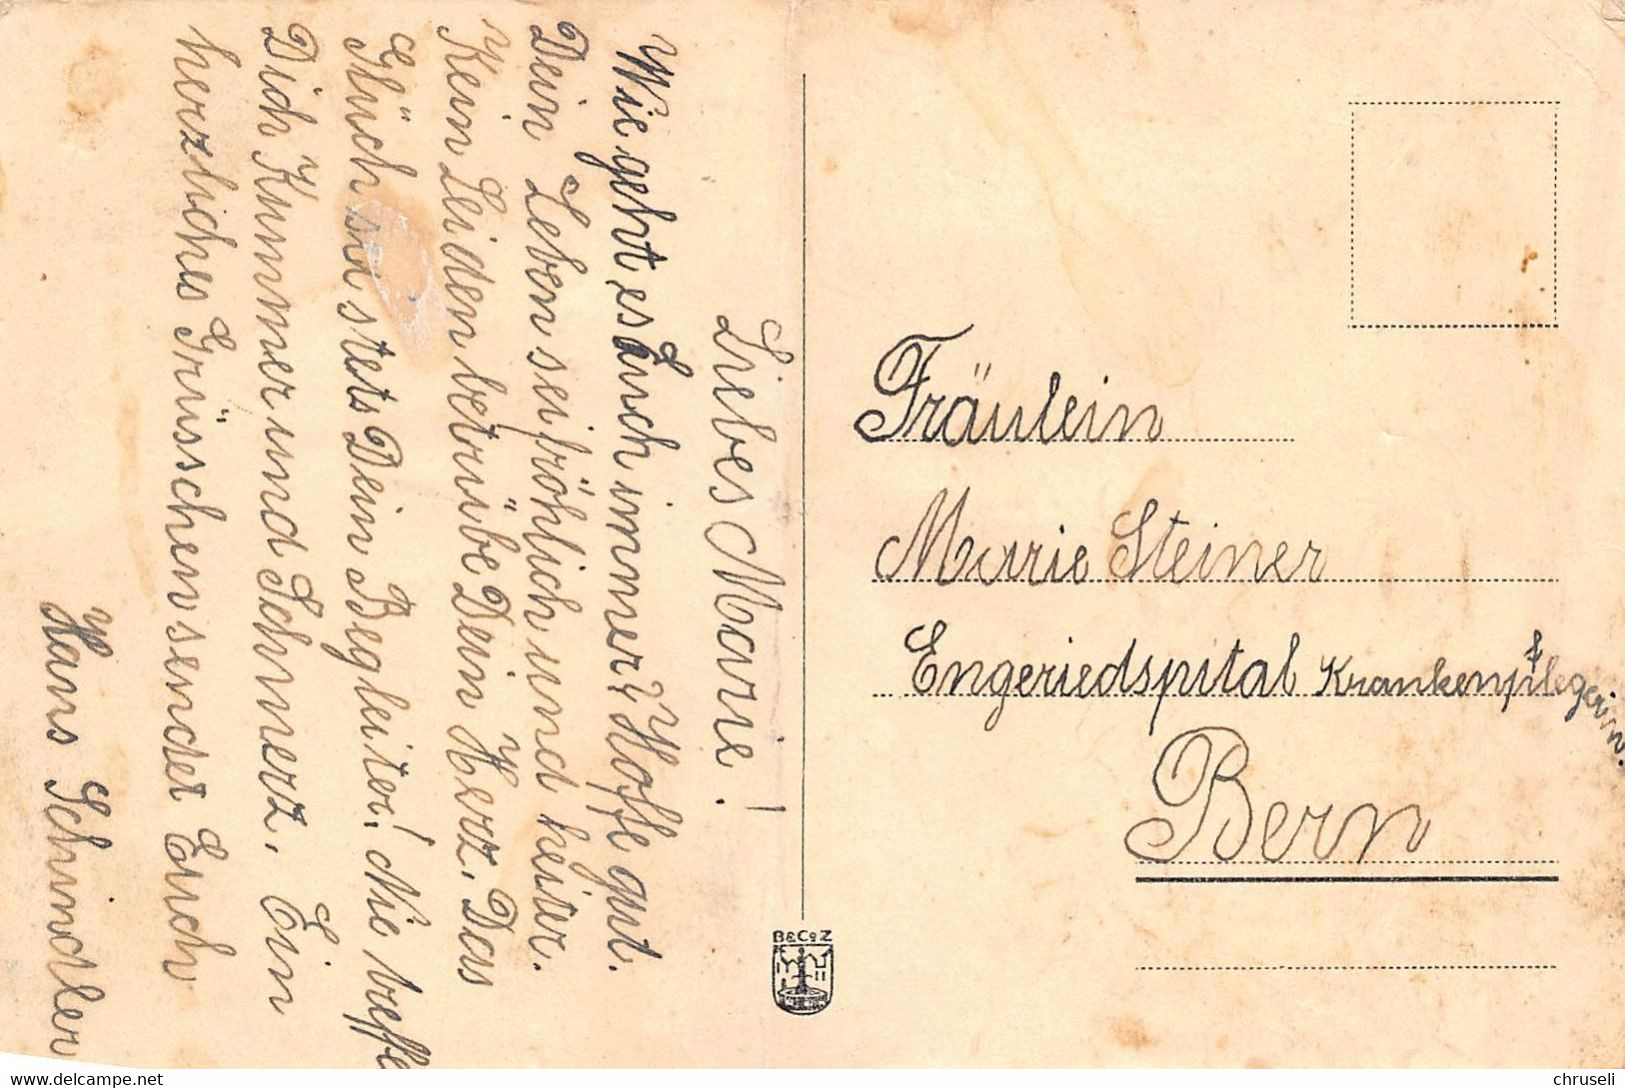 Liebes Marie!
Wie geht es Euch immer? Hoffe gut.
Dein Leben sei fröhlich und heiter.
Kein Leiden betrübe Dein Herz. Das
Glück sei stets Dein Begleiter! Nie treffe
Dich Kummer und Schmerz. Ein
herzliches Grüsschen sendet Euch
Hans Schindler
Fräulein
Marie Steiner
Engeriedspital Krankenpflegerin.
Bern
B&CoZ
delcampe.net
chruseli